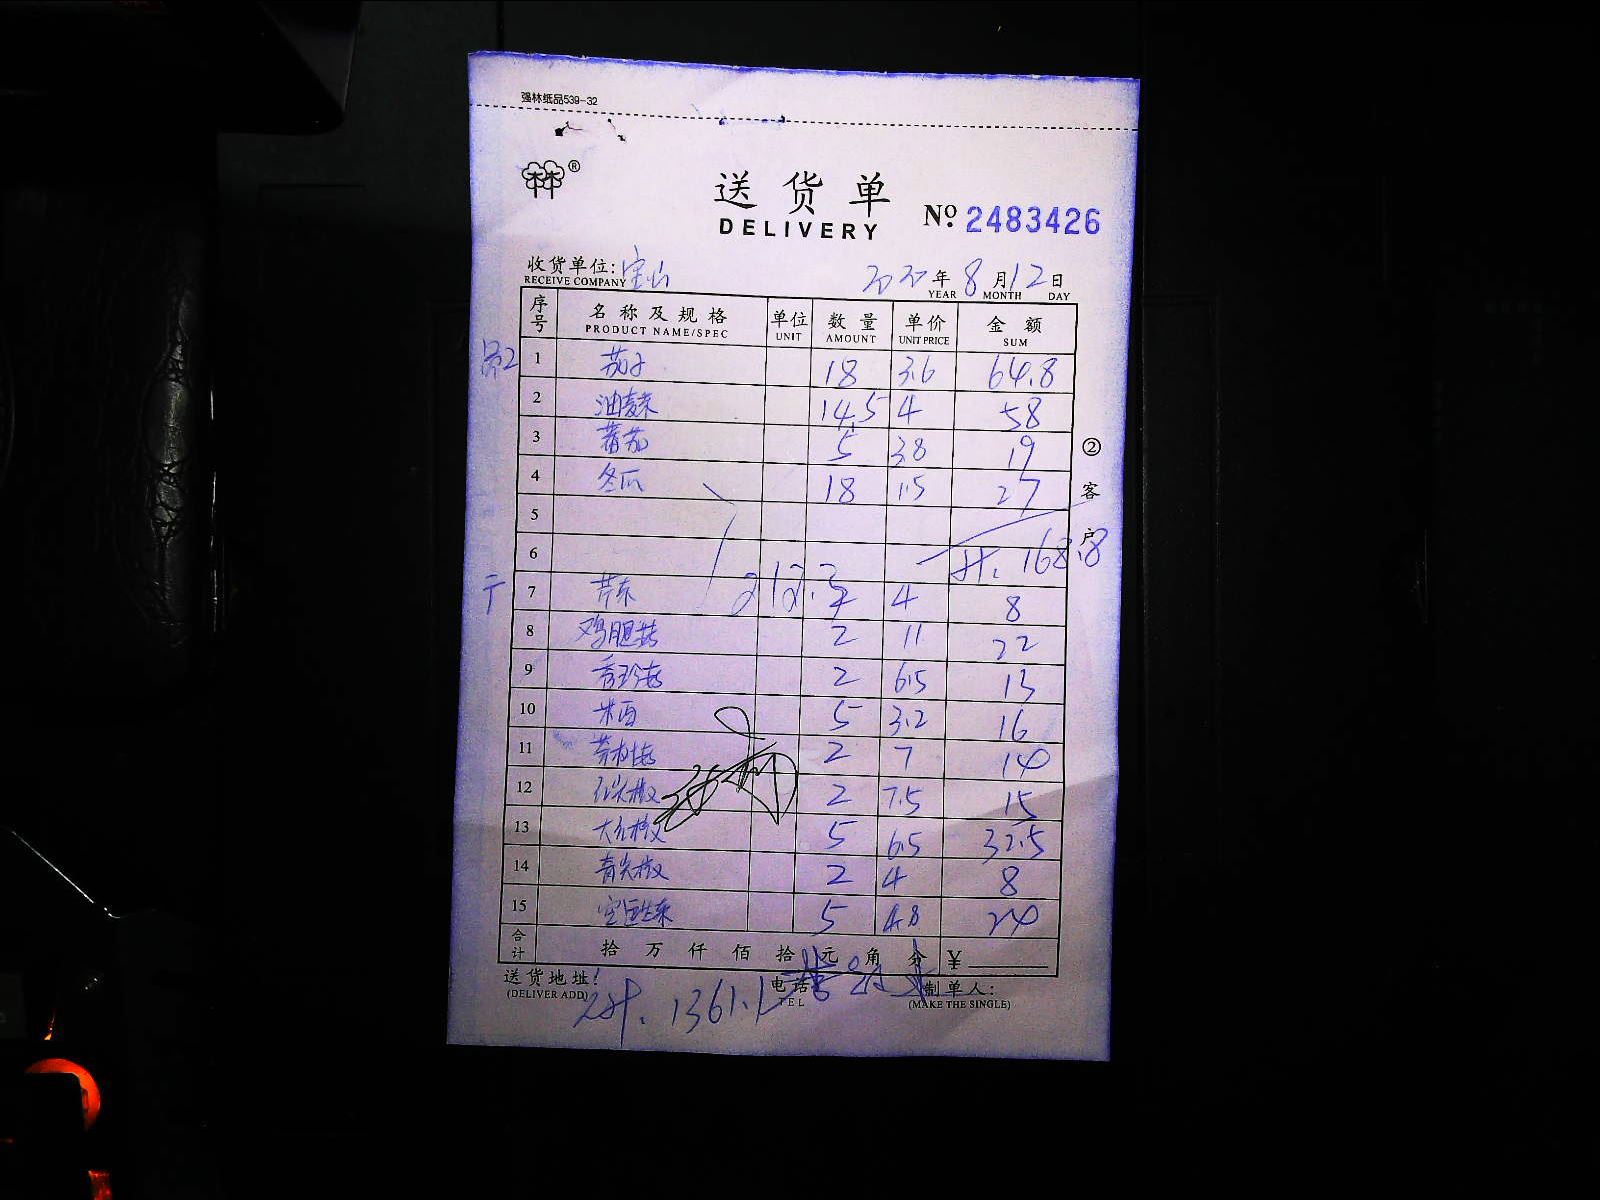 强林纸品539-32
林®
送货单
DELIVERY
No 2483426
收货单位: 宝山 2020年8月12日
RECEIVE COMPANY YEAR MONTH DAY
序号 名称及规格 单位 数量 单价 金额
PRODUCT NAME/SPEC UNIT AMOUNT UNIT PRICE SUM
1 茄子 18 3.6 64.8
2 油麦菜 14.5 4 58
3 蕃茄 5 3.8 19
4 冬瓜 18 1.5 27
5
6 计. 168.8
212.3
7 2 4 8
8 鸡腿菇 2 11 22
9 秀珍菇 2 6.5 13
10 5 3.2 16
11 2 7 14
12 红尖椒 2 7.5 15
13 5 6.5 32.5
14 青尖椒 2 4 8
15 5 4.8 24
② 客户
合计 拾 万 仟 佰 拾 元 角 分 ¥
送货地址: 电话 制单人:
(DELIVER ADD) TEL (MAKE THE SINGLE)
1361.1